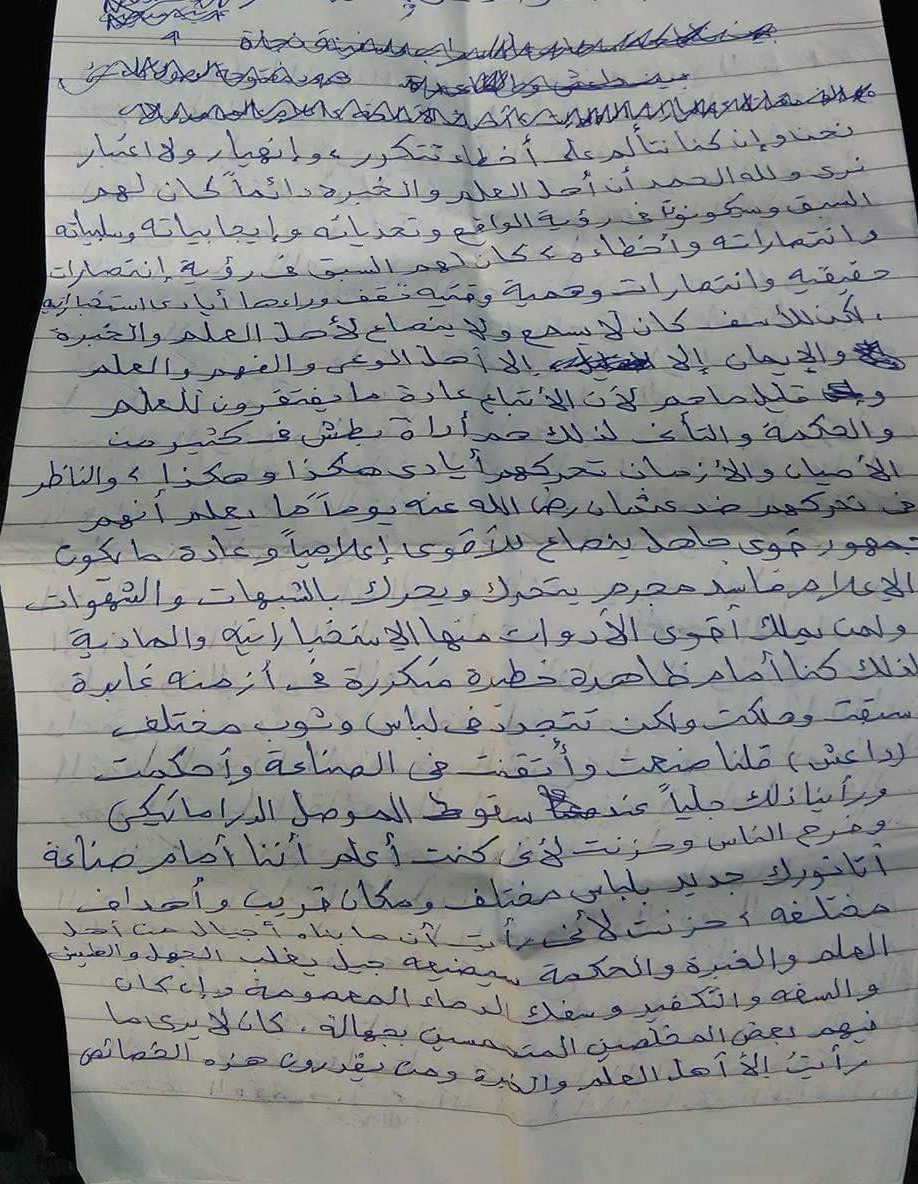 سفينة نجاة
نحن وإن كنا نتألم على أخطاء تتكرر، وإنهيار ولا اعتبار
نرى ولله الحمد أن أهل العلم والخبرة دائماً كان لهم
السبق وسكونوا فى رؤية الواقع وتحدياته وإيجابياته وسلبياته
وانتصاراته وأخطاءه، كان لهم السبق فى رؤية إنتصارات
حقيقيه وانتصارات وهمية وقتيه تقف وراءها أيادى استخباراتيه
، لكن للأسف كان لا يسمع ولا ينصاع لأهل العلم والخبرة
والإيمان إلا إلا أهل الوعى والفهم والعلم
و قليل ما هم لأن الأتباع عادة ما يفتقرون للعلم
والحكمة والتأنى لذلك هم أداة بطش فى كثير من
الأحيان والأزمان تحركهم أيادى هكذا وهكذا، والناظر
فى تحركهم ضد عثمان رضى الله عنه يوماً ما يعلم أنهم
جمهور غوى جاهل ينصاع للأقوى إعلامياً وعادة ما يكون
الإعلام فاسد مجرم يتحرك ويحرك بالشبهات والشهوات
ولمن يملك أقوى الأدوات منها الإستخباراتيه والمادية
لذلك كنا أمام ظاهرة خطيرة متكررة فى أزمنه غابرة
سبقت وهلكت ولكن تتجدد فى لباس وثوب مختلف
(داعش) قلنا صنعت وأتقنت فى الصناعة وأحكمت
ورأينا ذلك جلياً عند سقوط الموصل الدراماتيكى
وفرح الناس وحزنت لأنى كنت أعلم أننا أمام صناعة
أتاتورك جديد بلباس مختلف ومكان قريب وأهداف
مختلفه، حزنت لأنى رأيت أن ما بناه أجيال من أهل
العلم والخبرة والحكمة سيضيعه جيل يغلب الجهل والطيش
والسفه والتكفير وسفك الدماء المعصومة وإن كان
فيهم بعض المخلصين المتحمسين بجهالة، كان لا يرى ما
رأيتُ إلا أهل العلم والخبرة ومن يقدرون هذه الخصائص